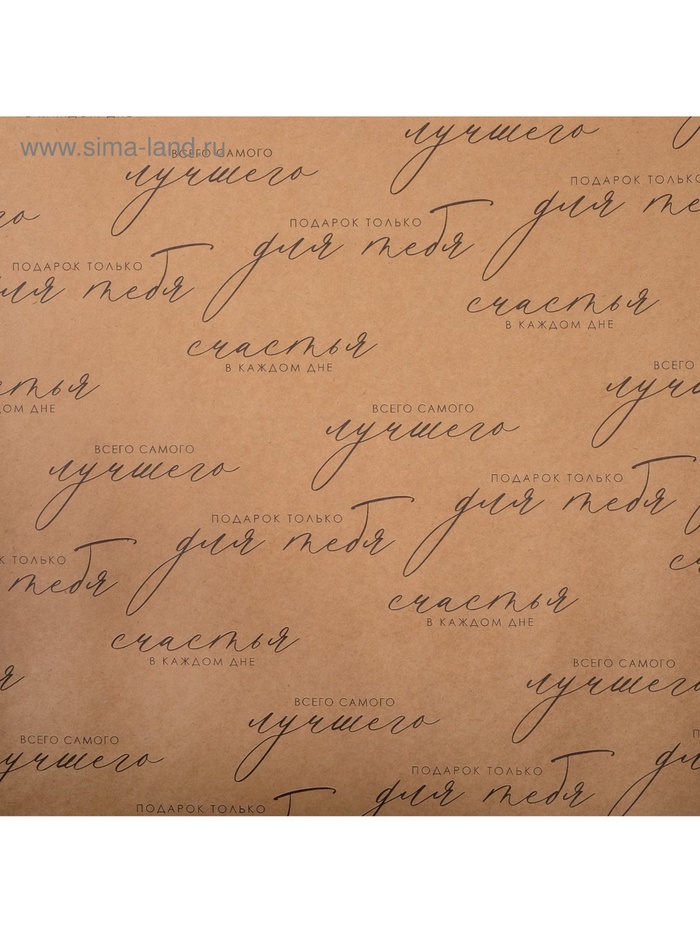 В КАЖДОМ ДНЕ
www.sima-land.ru
лучшего
ВСЕГО САМОГО
лучшего
ПОДАРОК ТОЛЬКО
для те
ПОДАРОК ТОЛЬКО
для тебя
го
ПОДАРОК ТОЛЬКО
для тебя
счастья
В КАЖДОМ ДНЕ
счастья
В КАЖДОМ ДНЕ
ВСЕГО
лучш
стья
ДОМ ДНЕ
ВСЕГО САМОГО
лучшего
ВСЕГО САМОГО
лучшего
ПОДАРОК ТОЛЬКО
для тебя
ПОДАРОК ТОЛЬКО
для тебя
К ТОЛЬКО
тебя
сч
счастья
В КАЖДОМ ДНЕ
счастья
В КАЖДОМ ДНЕ
ВСЕГО САМОГО
лучшего
я
ВСЕГО САМОГО
лучшего
ВСЕГО САМОГО
лучшего
П
дл
ПОДАРОК ТОЛЬКО
для тебя
ПОДАРОК ТОЛЬКО